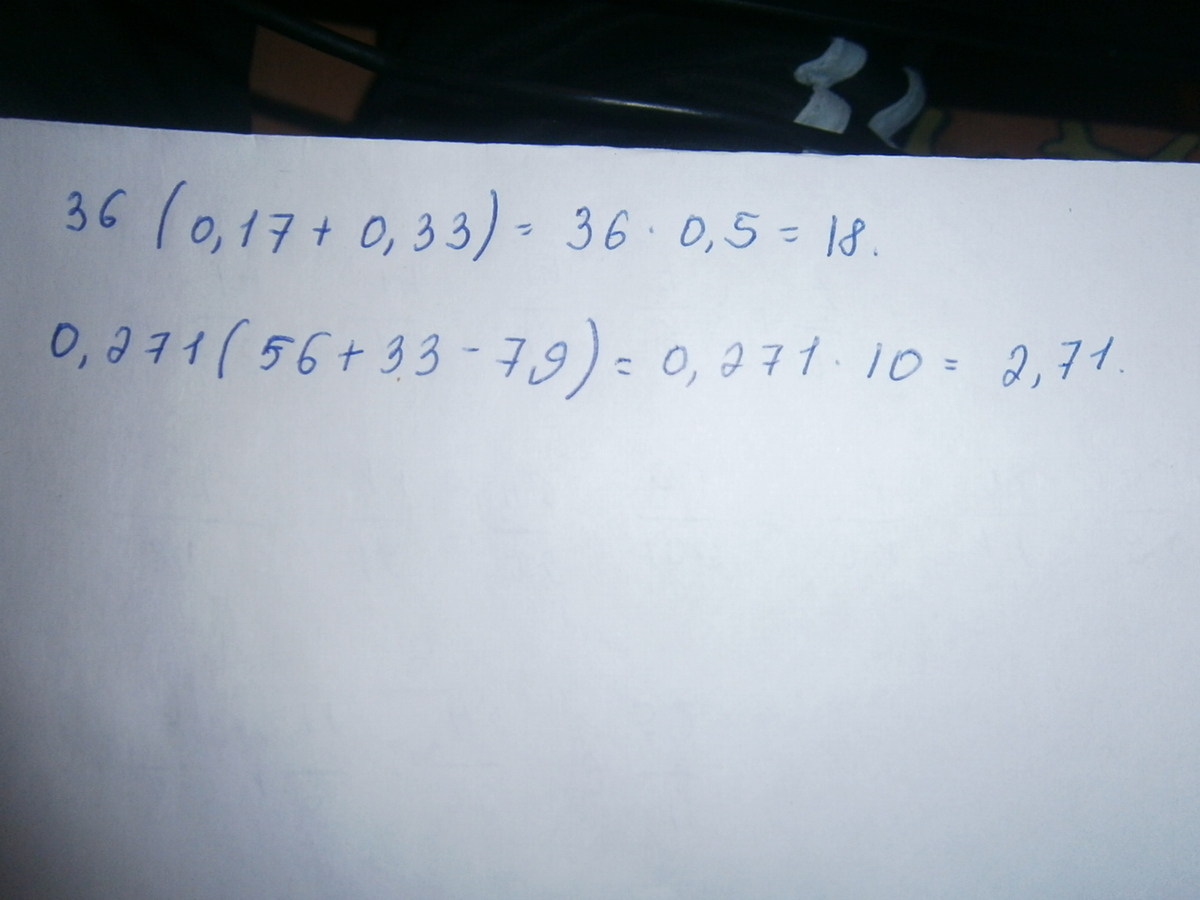 36 (0,17 + 0,33) = 36 · 0,5 = 18.
0,271 (56 + 33 - 79) = 0,271 · 10 = 2,71.